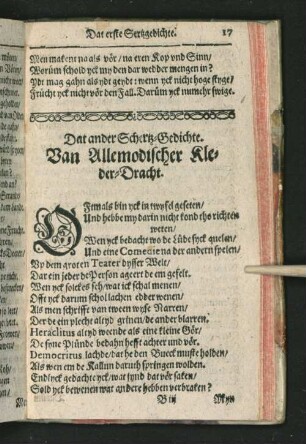 Dat erste Schertzgedichte. 17
Men makent so als vör / na eren Kop vnd Sinn /
Worüm scholdyck my den dar wedder mengen in?
Ydt mag gahn als ydt geydt: wenn yck nicht hoge styge /
Frücht yck nicht vör den Fall. Darüm yck numehr swige.
Dat ander Schertz-Gedichte.
Van Allemodischer Kle-
der-Dracht.
Offtmals bin yck in twyfel geseten /
Und hebbe my darin nicht kond tho richten
weten /
Wen yck bedacht wo de Lüde syck quelen /
Und eine Comedie na der andern spelen /
Vp dem groten Teater dysser Welt /
Dar ein jeder de Person ageert de em gefelt.
Wen yck solckes seh / wat ick schal menen /
Offt yck darum schol lachen edder wenen /
Als men schryfft van tween wyse Narren /
Der de ein plecht altyd grinen / de ander blarren.
Heraclitus altyd weende als eine kleine Gör /
De syne Plünde bedahn hefft achter vnd vör.
Democritus lachde / dat he den Bueck muste holden /
Als wen em de Kallun daruth springen wolden.
Endlyck gedachte yck / wat synd dat vör saken /
Sold yck bewenen wat andere hebben verbraken?
B iij Myn